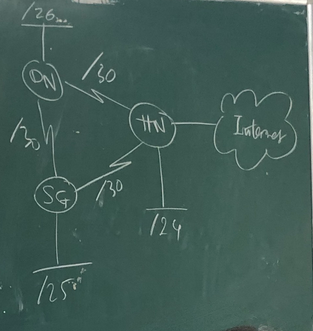 /26
DN
/30
HN
Internet
/30
SG
/30
/24
/25